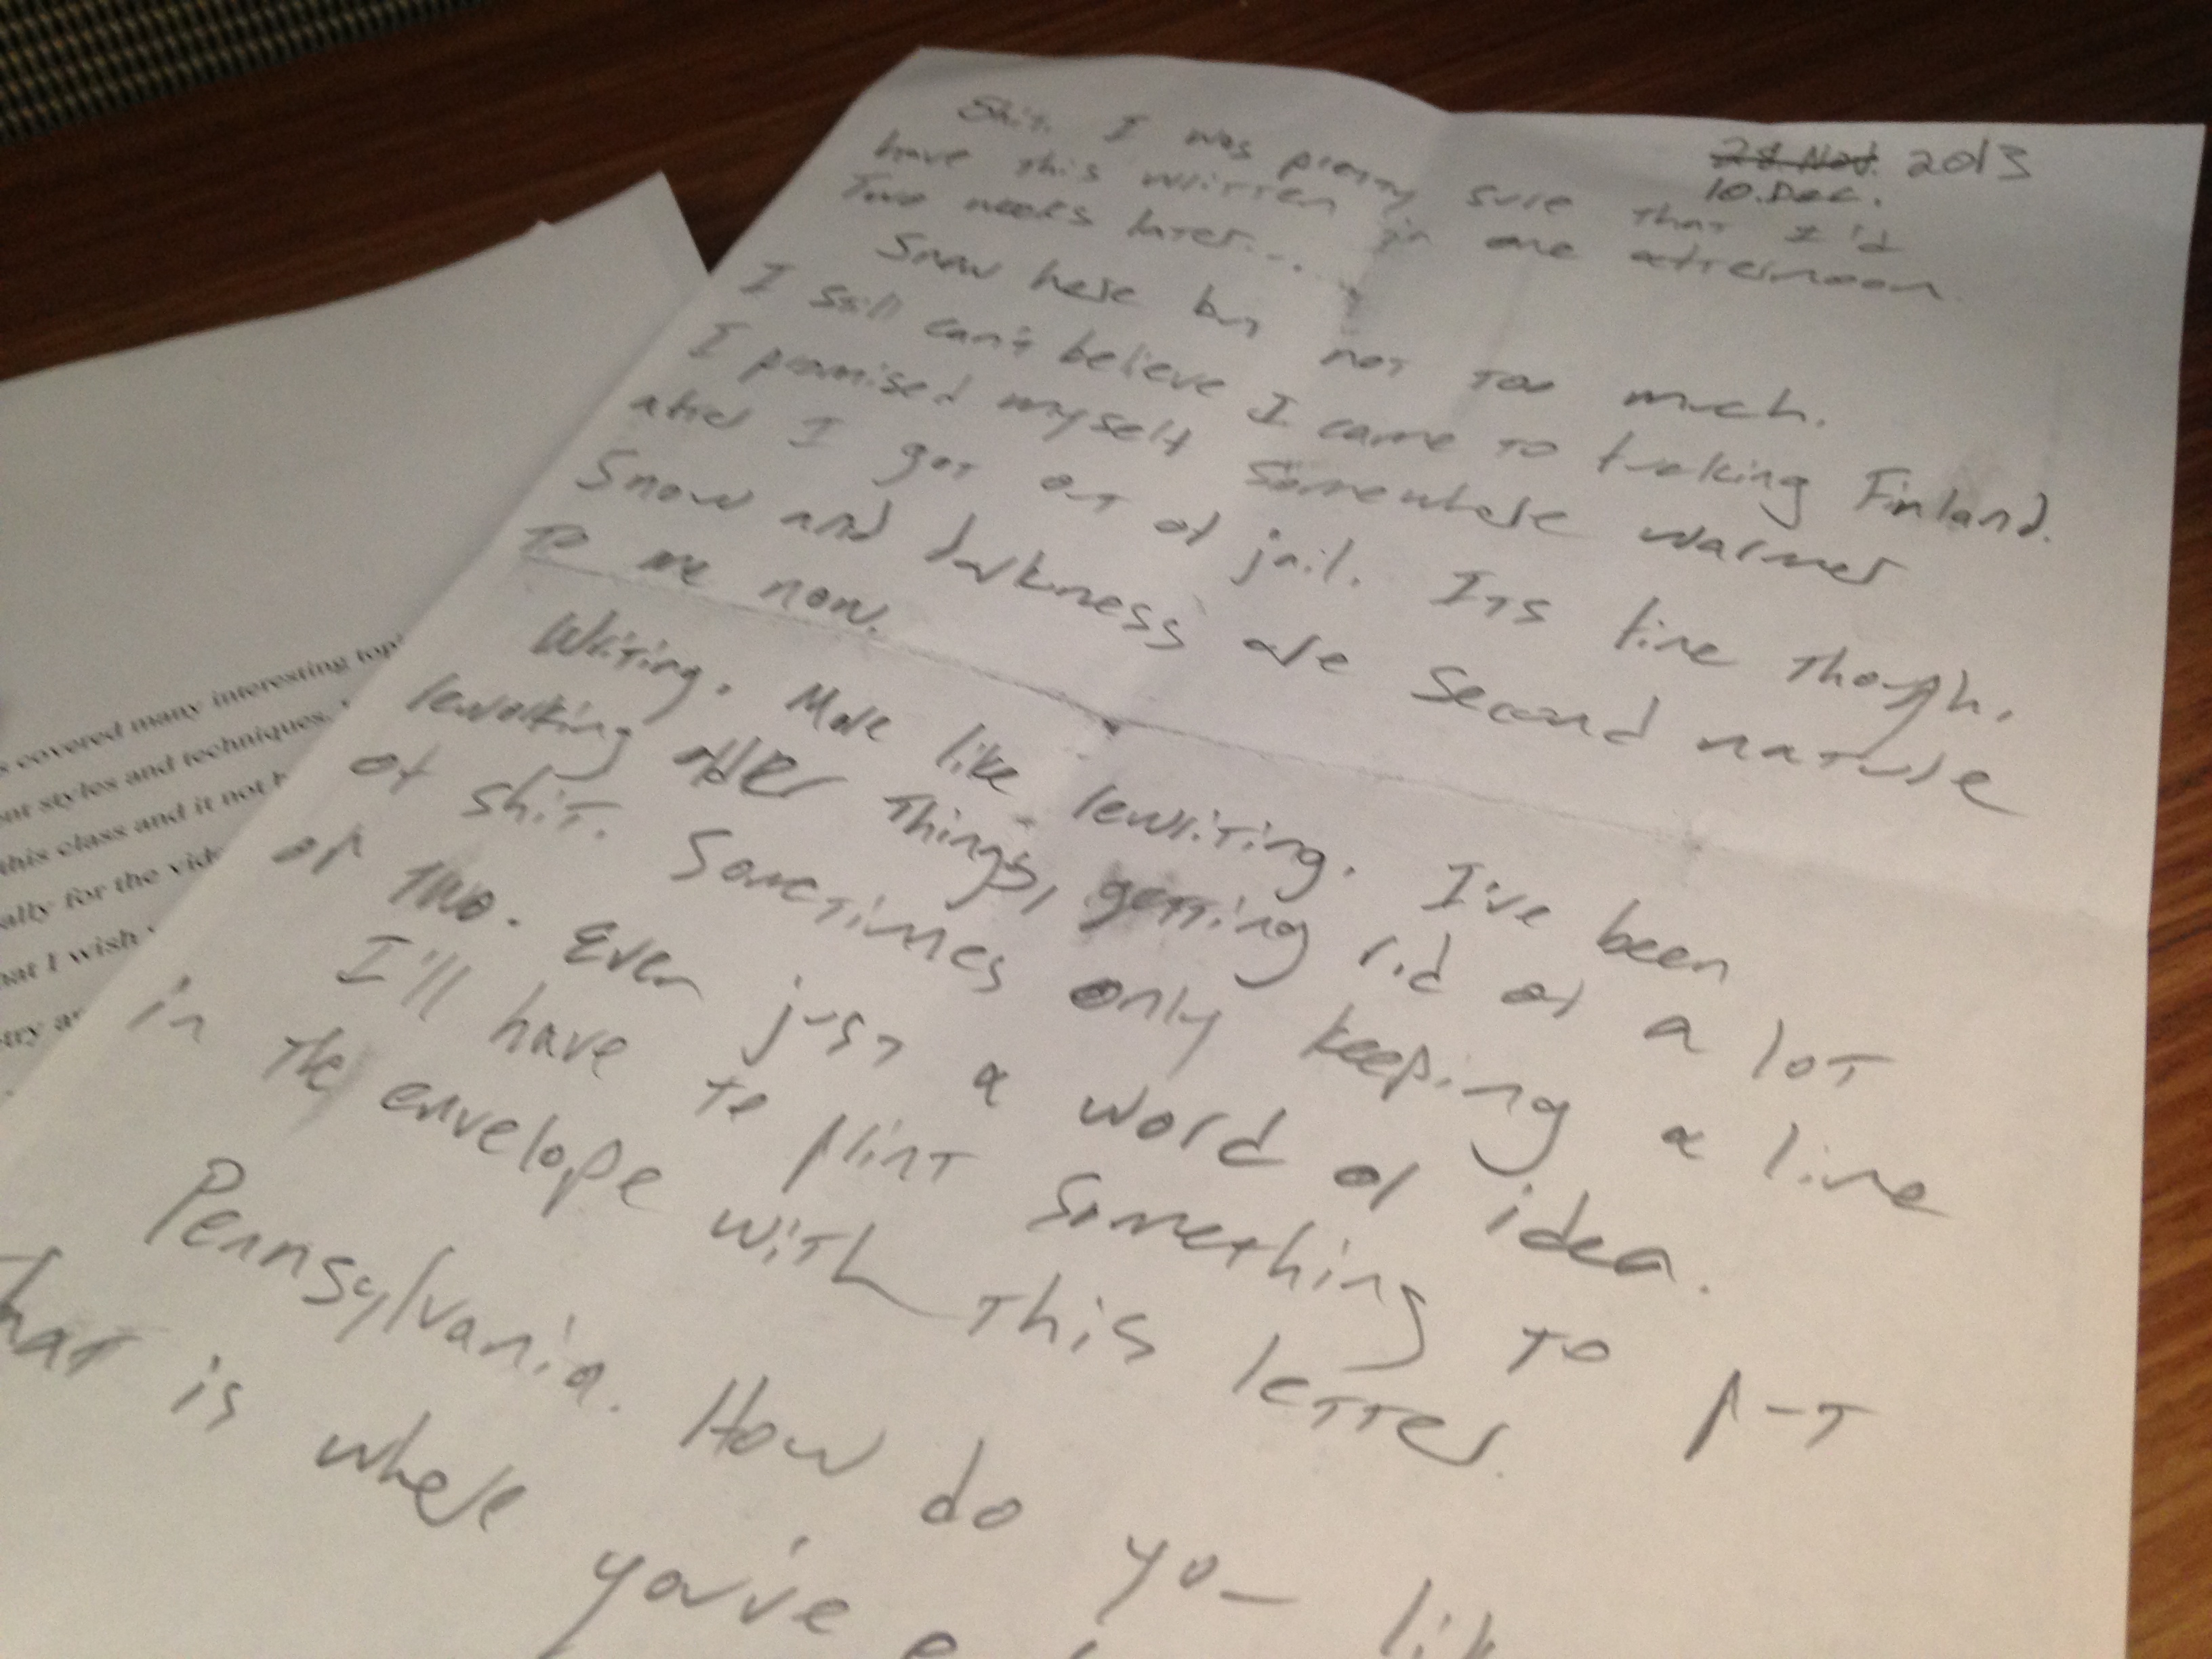 28 Nov. 2013
10. Dec.
Shit. I was pretty sure that I'd
have this written in one afternoon.
Two weeks later....
Snow here but not too much.
I still can't believe I came to fucking Finland.
I promised myself somewhere warmer
after I got out of jail. Its fine though.
Snow and darkness are second nature
to me now.
Writing. More like rewriting. I've been
reworking older things, getting rid of a lot
of shit. Sometimes only keeping a line
or two. Even just a word or idea.
I'll have to print something to put
in the envelope with this letter.
Pennsylvania. How do you
is where you've
s covered many interesting
styles and techniques.
this class and it not
ally for the
at I wish
try